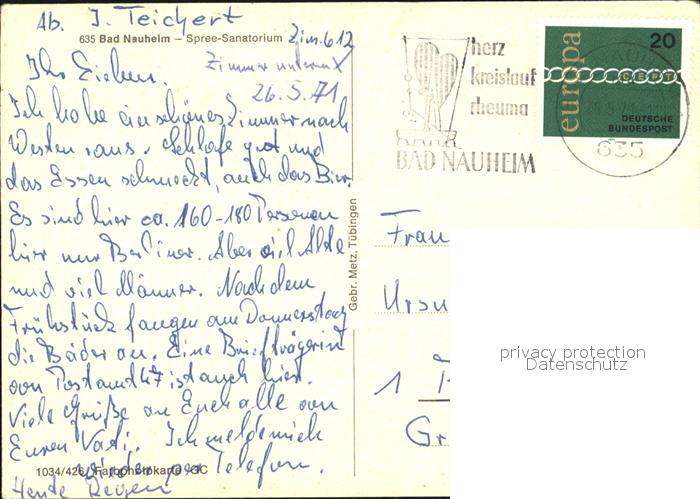 Ab. J. Teichert
635 Bad Nauheim – Spree-Sanatorium Zim. 612
Zimmer
26.5.71
Ihr Lieben.
Ich habe ein schönes Zimmer nach
Westen raus. Schlafe gut und
das Essen schmeckt, auch das Bier.
Es sind hier ca. 160-180 Personen
hier nur Berliner. Aber viel Alte
und viel Männer. Nach dem
Frühstück fangen am Donnerstag
die Bäder an. Eine Briefträgerin
von Postamt 47 ist auch hier.
Viele Grüße an Euch alle von
Euren Vati. Ich melde mich
wieder per Telefon.
1034/426 Farbphotokarte GC
Heute Regen
Gebr. Metz, Tübingen
herz
kreislauf
rheuma
BAD NAUHEIM
europa
20
CEPT
DEUTSCHE
BUNDESPOST
635
Frau
Ursu
1
Gr
privacy protection
Datenschutz